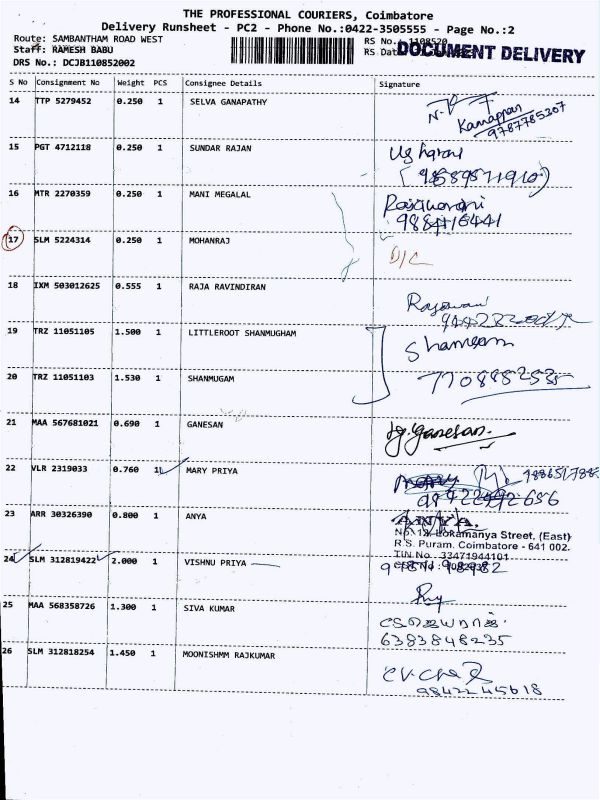 THE PROFESSIONAL COURIERS, Coimbatore
Delivery Runsheet - PC2 - Phone No.:0422-3505555 - Page No.:2
Route: SAMBANTHAM ROAD WEST
RS No.: 1108520
Staff: RAMESH BABU
RS Dat
DOCUMENT DELIVERY
DRS No.: DCJB110852002
S No Consignment No Weight PCS Consignee Details Signature
14 TTP 5279452 0.250 1 SELVA GANAPATHY
9787785207
15 PGT 4712118 0.250 1 SUNDAR RAJAN
16 MTR 2270359 0.250 1 MANI MEGALAL
17 SLM 5224314 0.250 1 MOHANRAJ
D/C
18 IXM 503012625 0.555 1 RAJA RAVINDIRAN
19 TRZ 11051105 1.500 1 LITTLEROOT SHANMUGHAM
20 TRZ 11051103 1.530 1 SHANMUGAM
7708882535
21 MAA 567681021 0.690 1 GANESAN Ganesan
22 VLR 2319033 0.760 1 MARY PRIYA
23 ARR 30326390 0.800 1 ANYA ANYA.
No. 12, Lokamanya Street, (East)
R.S. Puram, Coimbatore - 641 002.
TIN No. 33471944101
24 SLM 312819422 2.000 1 VISHNU PRIYA
25 MAA 568358726 1.300 1 SIVA KUMAR
6383848235
26 SLM 312818254 1.450 1 MOONISHMM RAJKUMAR
9842245618